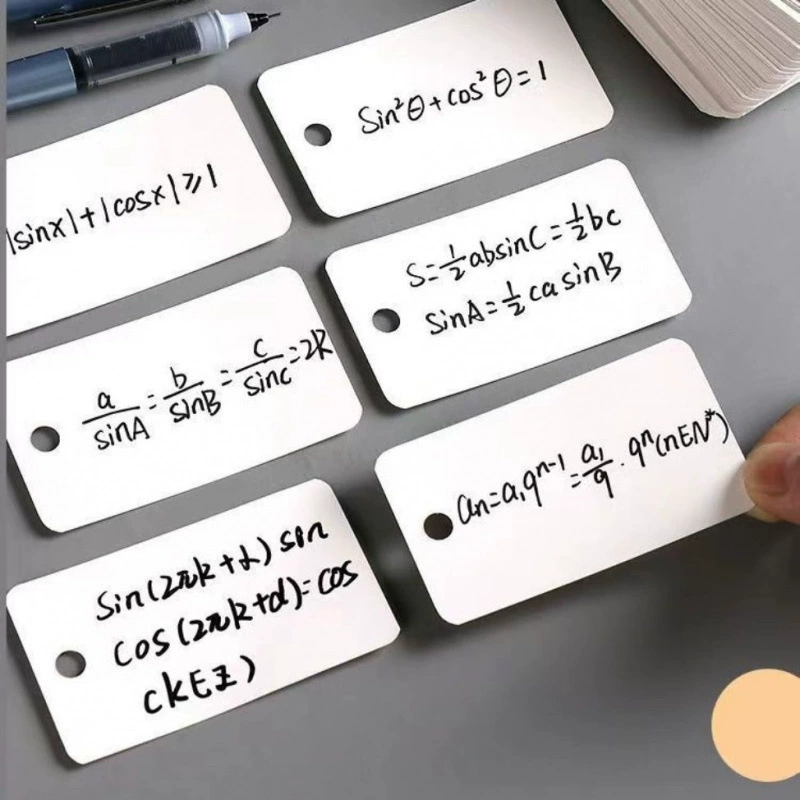 sin²θ+cos²θ=1
|sinx|+|cosx|⩾1
S=½absinC=½bc
sinA=½casinB
a/sinA=b/sinB=c/sinc=2R
an=a₁qⁿ⁻¹=a₁/q·qⁿ(n∈N*)
Sin(2πk+α)sin
cos(2πk+α)=cos
ck∈Z)